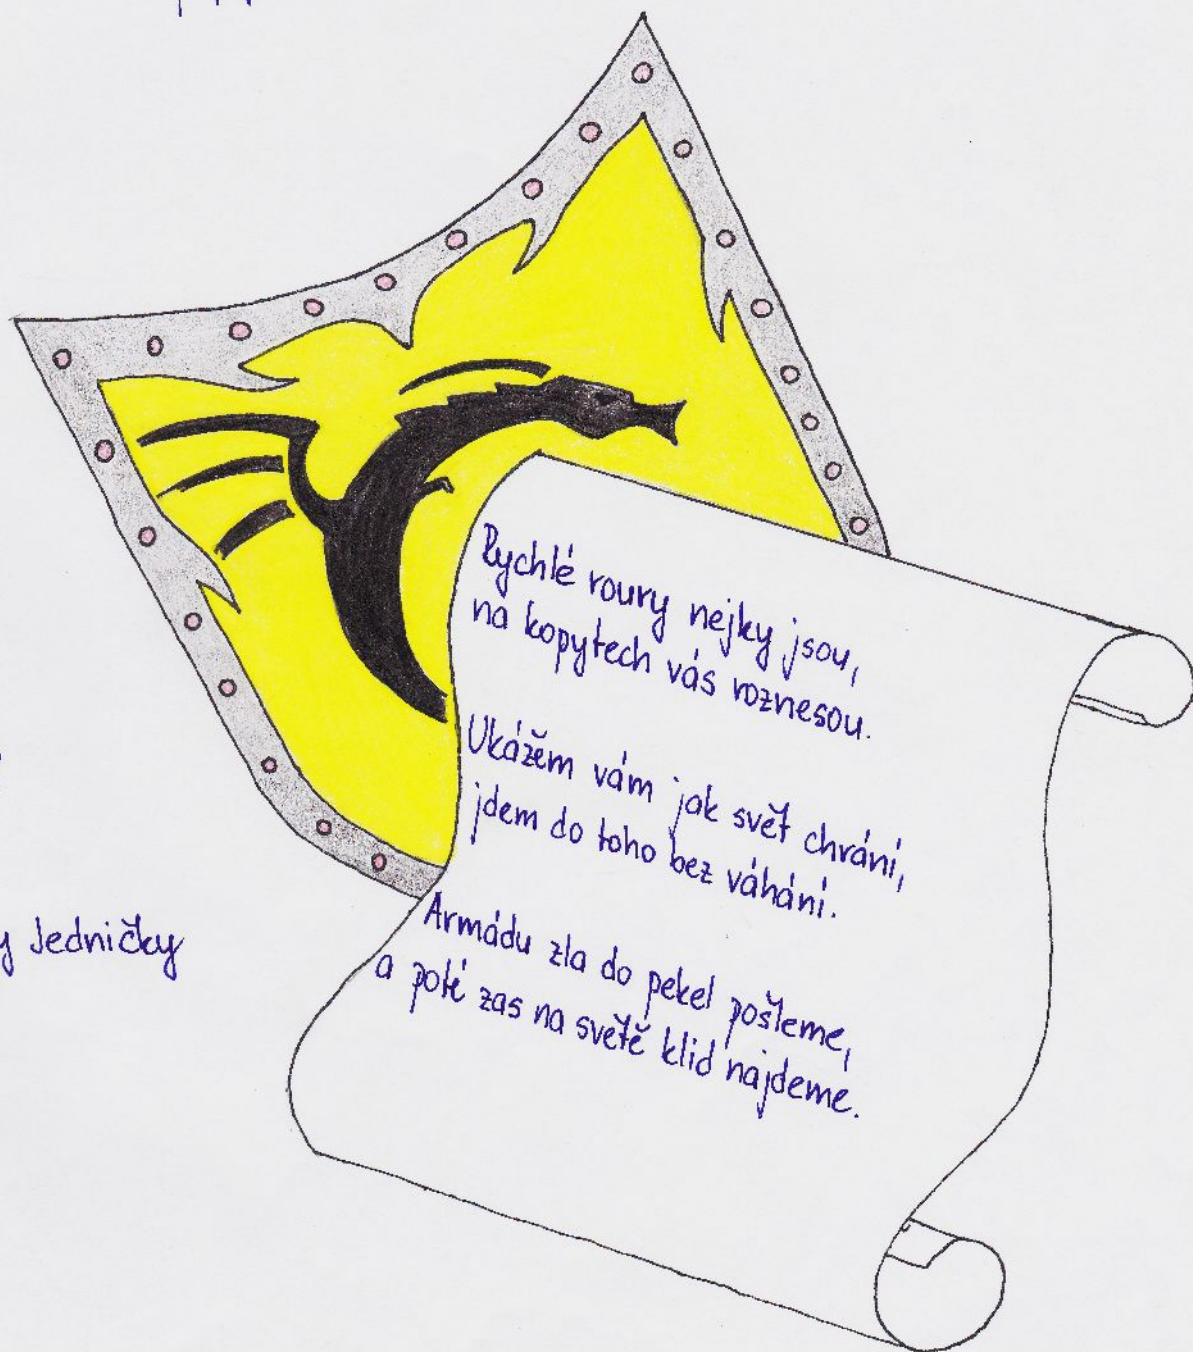 Rychlé roury nejky jsou,
na kopytech vás roznesou.
Ukážěm vám jak svět chrání,
jdem do toho bez váhání.
Armádu zla do pekel pošleme,
a poté zas na světě klid najdeme.
Jedničky